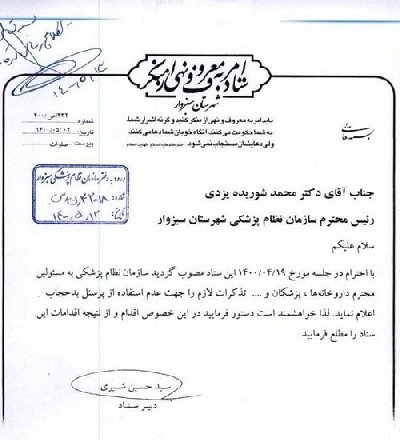 ستاد امر به معروف و نهی از منکر
شهرستان سبزوار
باید امر به معروف و نهی از منکر کنید و گرنه اشرار شما
به شما حکومت می کنند، آنگاه خوبان شما دعا می کنند
ولی دعایشان مستجاب نمی شود.
شماره:
تاریخ: ۱۴۰۰/۰۵/۰۲
پیوست:
بسمه تعالی
ورود به دفتر سازمان نظام پزشکی سبزوار
شماره:
تاریخ: ۱۴۰۰/۵/۱۲
جناب آقای دکتر محمد شوریده یزدی
رئیس محترم سازمان نظام پزشکی شهرستان سبزوار
سلام علیکم
با احترام در جلسه مورخ ۱۴۰۰/۰۴/۱۹ این ستاد مصوب گردید سازمان نظام پزشکی به مسئولین
محترم داروخانه‌ها ، پزشکان و .... تذکرات لازم را جهت عدم استفاده از پرسنل بدحجاب ،
اعلام نماید. لذا خواهشمند است دستور فرمایید در این خصوص اقدام و از نتیجه اقدامات این
ستاد را مطلع فرمایید.
سید حسین شبیری
دبیر ستاد